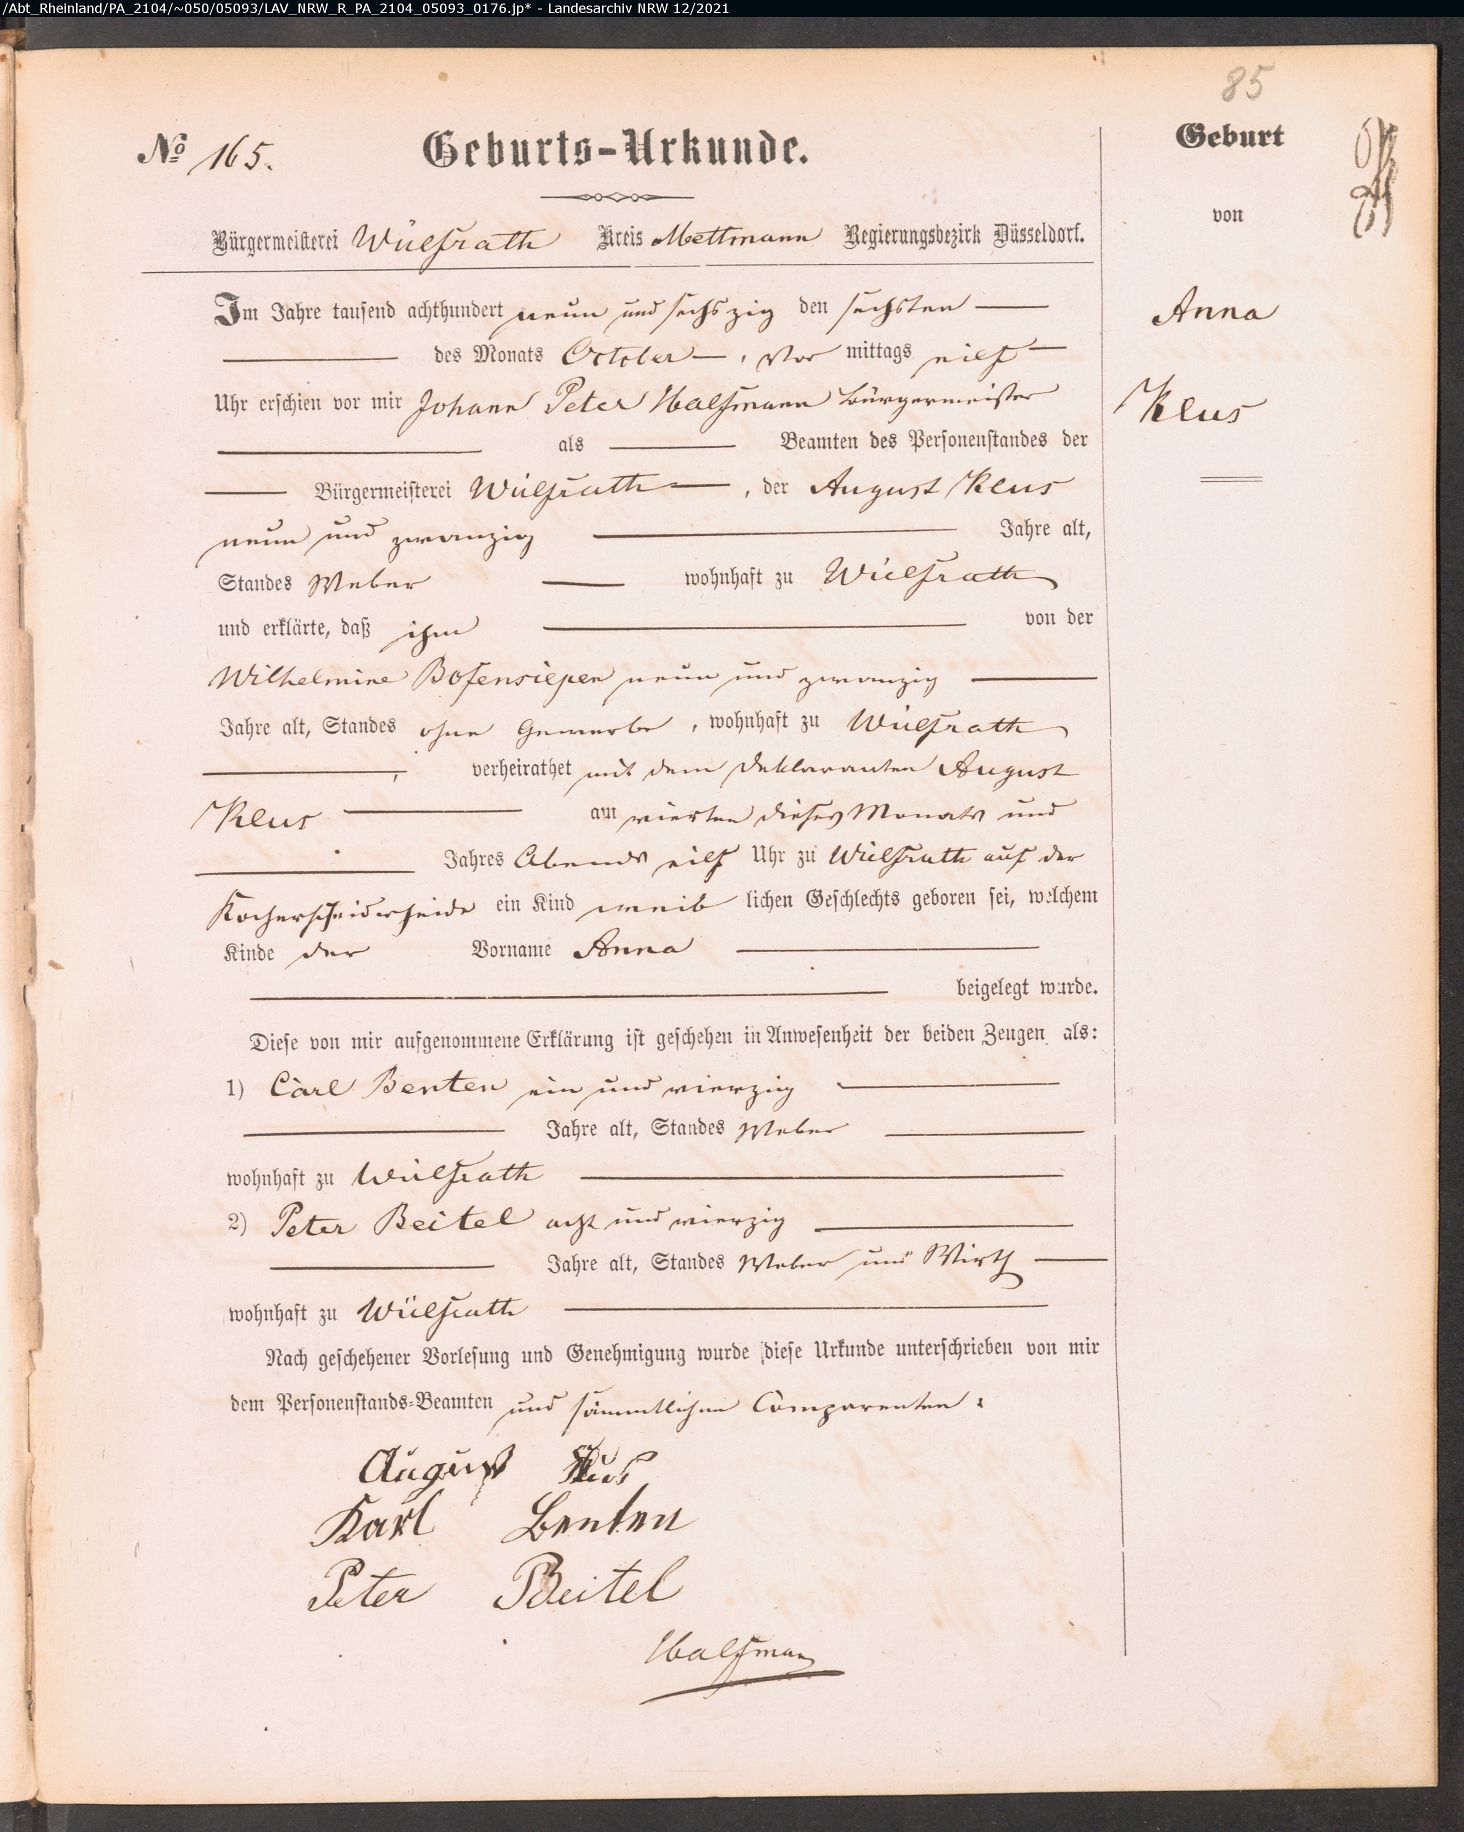 /Abt_Rheinland/PA_2104/~050/05093/LAV_NRW_R_PA_2104_05093_0176.jp* - Landesarchiv NRW 12/2021
85
No 165.
Geburts-Urkunde.
Bürgermeisterei Wülfrath Kreis Mettmann Regierungsbezirk Düsseldorf.
Im Jahre tausend achthundert neun und sechszig den sechsten
des Monats October, Vor mittags eilf
Uhr erschien vor mir Johann Peter Halfmann Bürgermeister
als Beamten des Personenstandes der
Bürgermeisterei Wülfrath, der August Kleus
neun und zwanzig Jahre alt,
Standes Weber wohnhaft zu Wülfrath
und erklärte, daß ihm von der
Wilhelmine Bosensiepen neun und zwanzig
Jahre alt, Standes ohne Gewerbe, wohnhaft zu Wülfrath
, verheirathet mit dem Deklaranten August
Kleus am vierten dieses Monats und
Jahres Abends eilf Uhr zu Wülfrath auf der
Kocherscheiderheide ein Kind weib lichen Geschlechts geboren sei, welchem
Kinde der Vorname Anna
beigelegt wurde.
Diese von mir aufgenommene Erklärung ist geschehen in Anwesenheit der beiden Zeugen als:
1) Carl Benten ein und vierzig
Jahre alt, Standes Weber
wohnhaft zu Wülfrath
2) Peter Beitel acht und vierzig
Jahre alt, Standes Weber und Wirth
wohnhaft zu Wülfrath
Nach geschehener Vorlesung und Genehmigung wurde diese Urkunde unterschrieben von mir
dem Personenstands-Beamten und sämmtlichen Comparenten:
August Kleus
Karl Benten
Peter Beitel
Halfmann
Geburt
von
Anna
Kleus